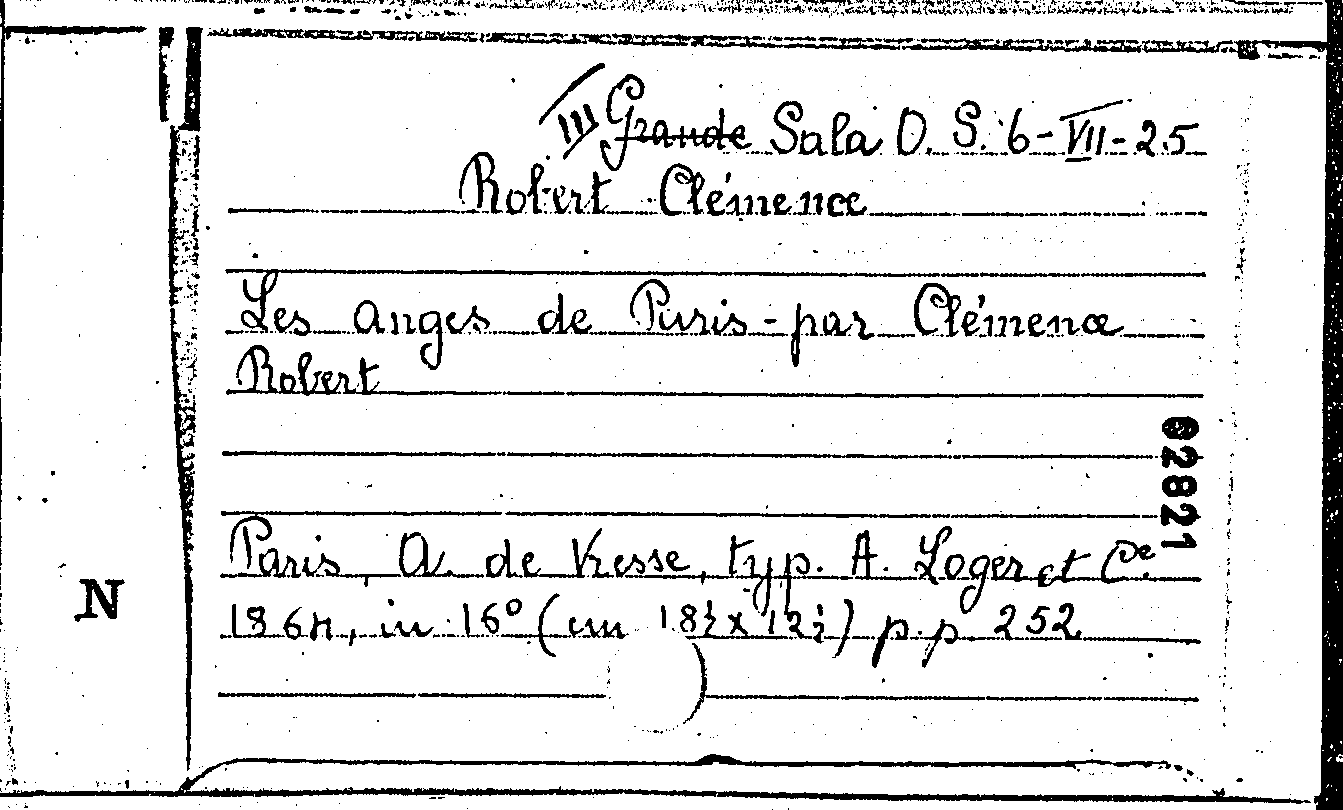 III Grande Sala O. S. 6-VII-25
Robert Clémence
Les anges de Paris - par Clémence
Robert
62821
Paris, A. de Vresse, typ. A. Loger et Cie.
N
1864, in 16° (cm 18½ x 12½) p.p. 252